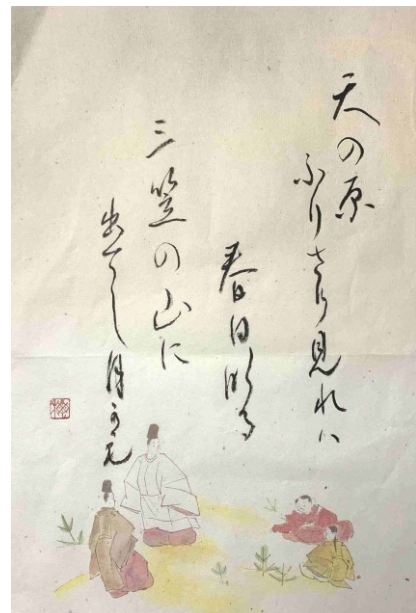 天の原
ふりさけ見れハ
春日なる
三笠の山に
出てし月かも